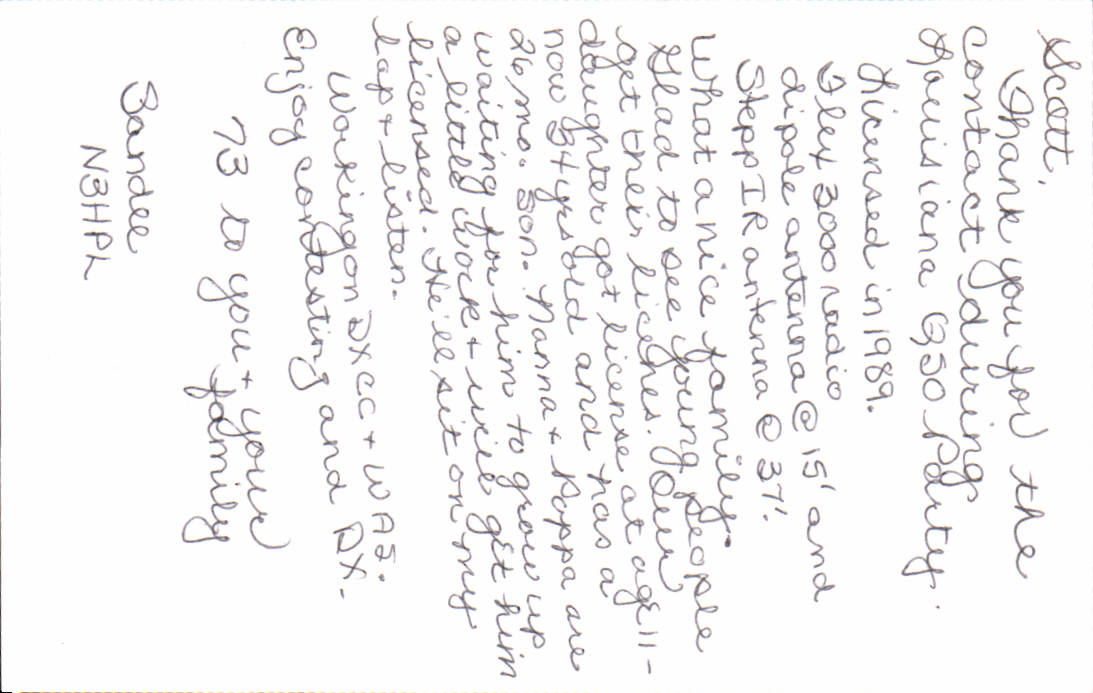 Scott,
Thank you for the
contact during
Louisiana QSO Party.
Licensed in 1989.
Flex 3000 radio
dipole antenna @ 15' and
SteppIR antenna @ 37'.
What a nice family.
Glad to see young people
get their licenes. Our
daughter got license at age 11-
now 34 yrs old and has a
26 mo. son. Nanna & Poppa are
waiting for him to grow up
a little work & will get him
licensed. He'll sit on my
lap & listen.
Working on DXCC & WAS.
Enjoy contesting and DX.
73 to you & your
family
Sandee
N3HPL